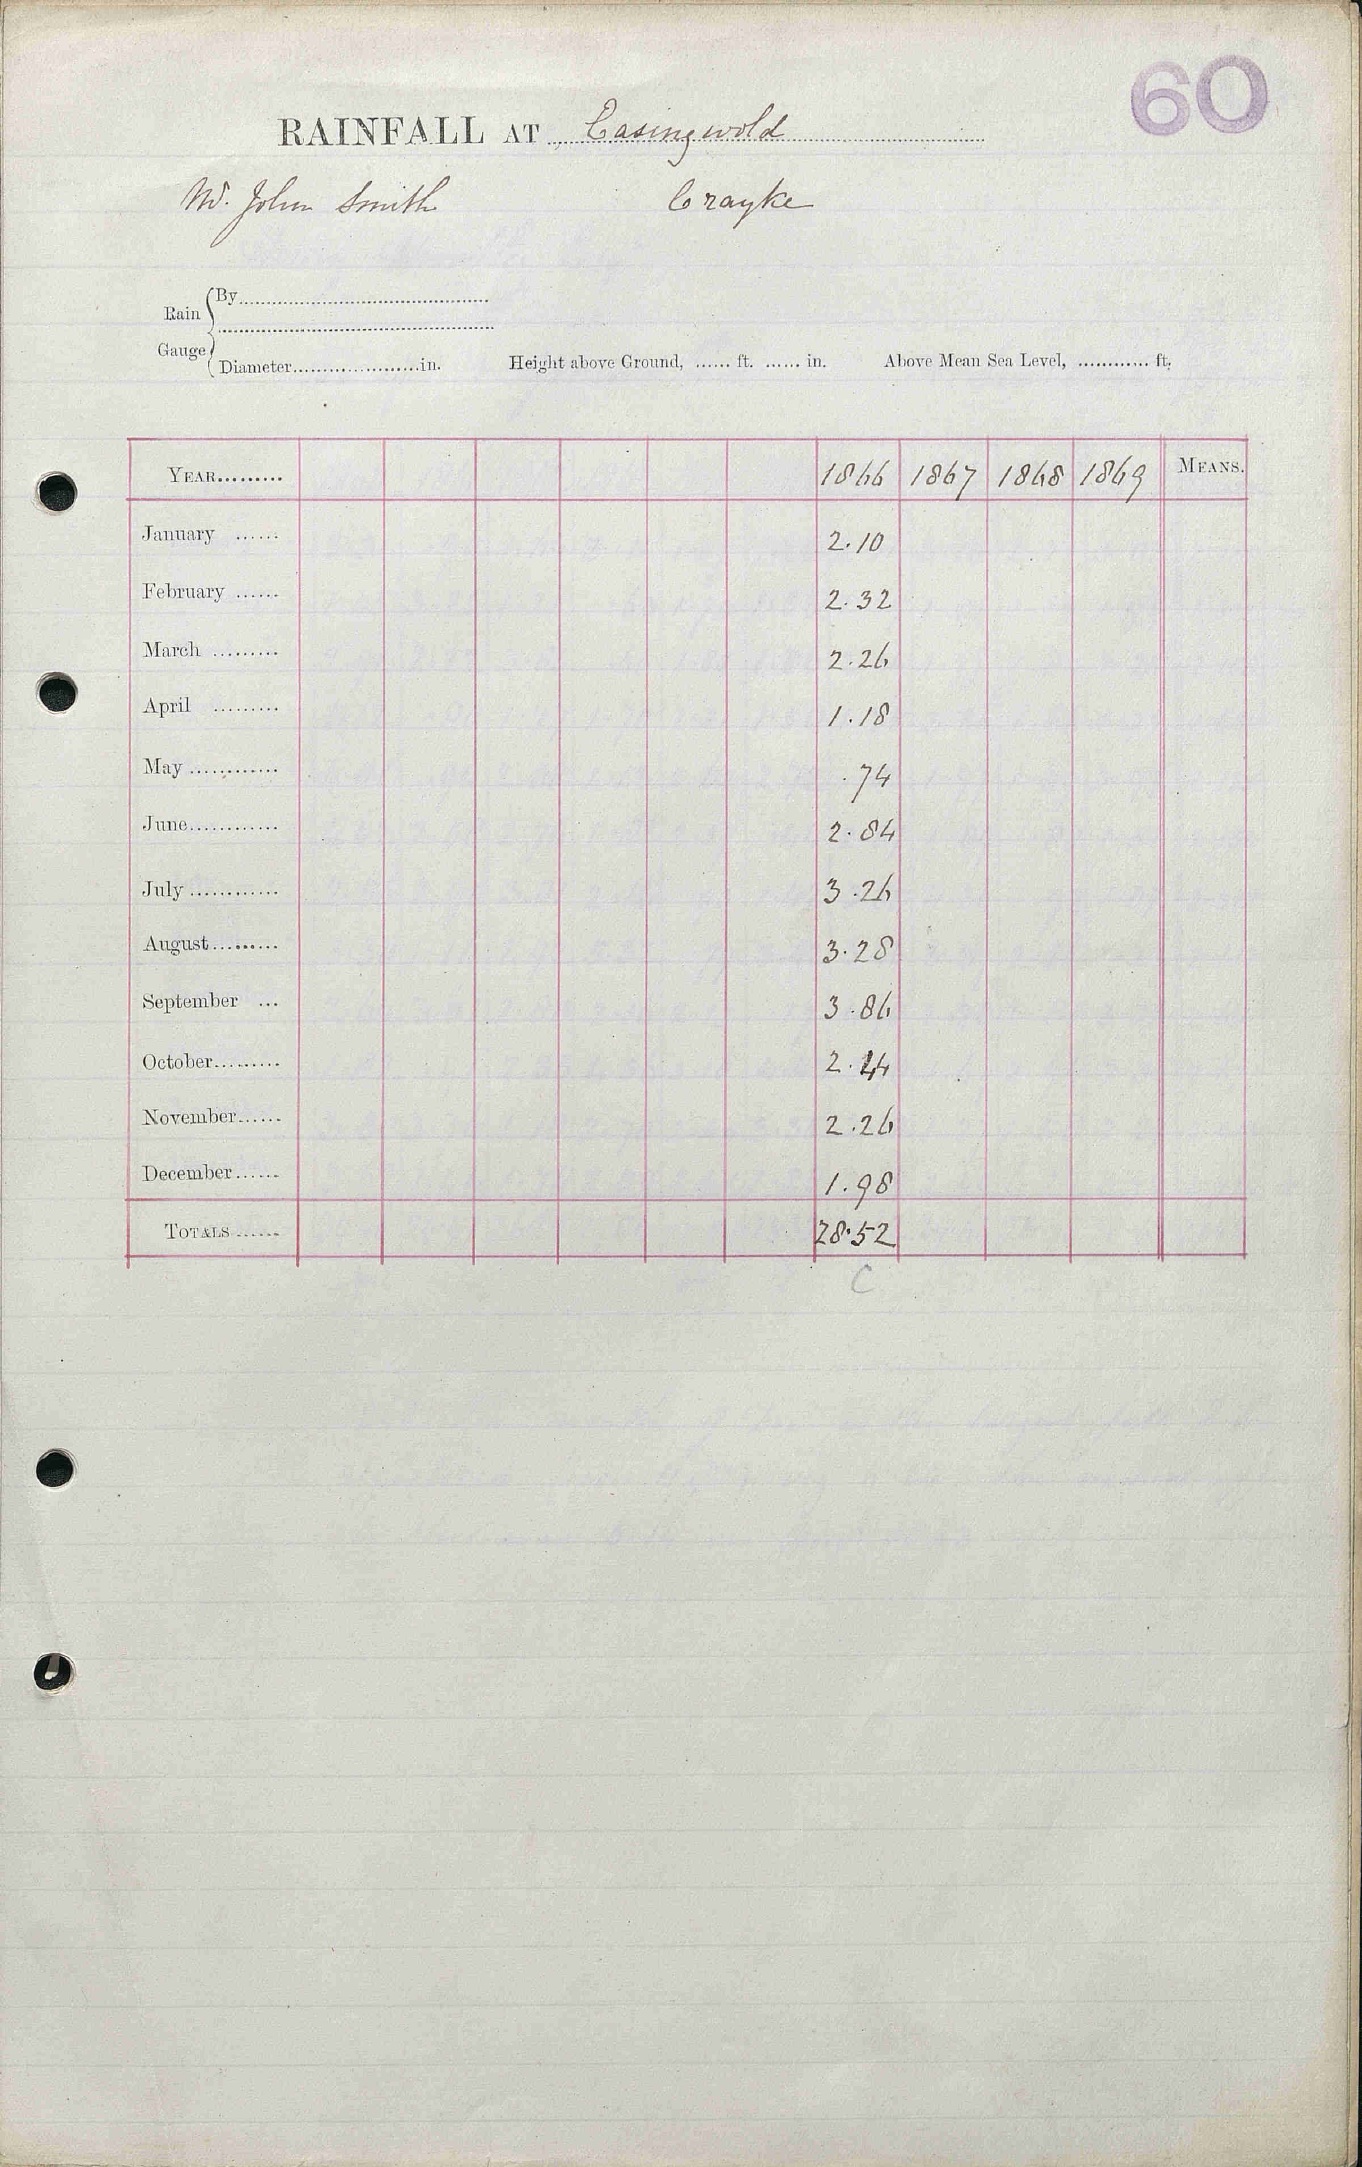 60
RAINFALL AT Easingwold
Mr. John Smith Crayke
Rain Gauge
By
Diameter.....................in. Height above Ground, ...... ft. ...... in. Above Mean Sea Level, ............ ft.
YEAR......... 1866 1867 1868 1869 MEANS.
January ...... 2.10
February ...... 2.32
March ......... 2.26
April ......... 1.18
May ............ .74
June............ 2.84
July ............ 3.26
August......... 3.28
September ... 3.86
October......... 2.44
November...... 2.26
December...... 1.98
TOTALS ...... 28.52
C